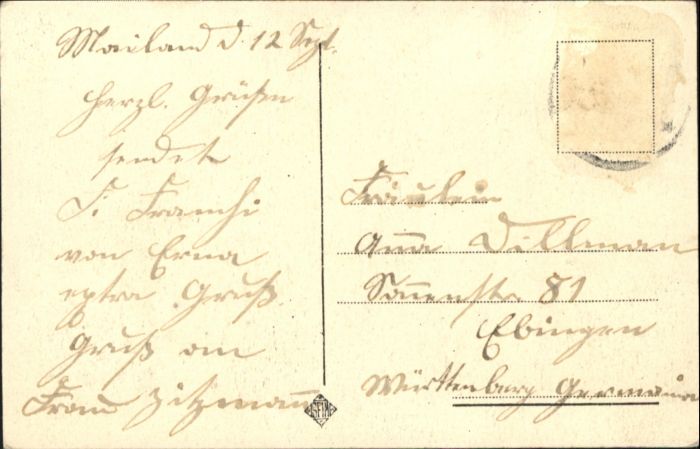 Mailand d 12 Sept.
herzl. Grüßen
sendet
F. Franchi
von Erna
extra Gruß.
Gruß an
Frau Zitzmann
Fräulein
Anna Dillman
Sonnenstr 81
Ebingen
Württenberg Germania